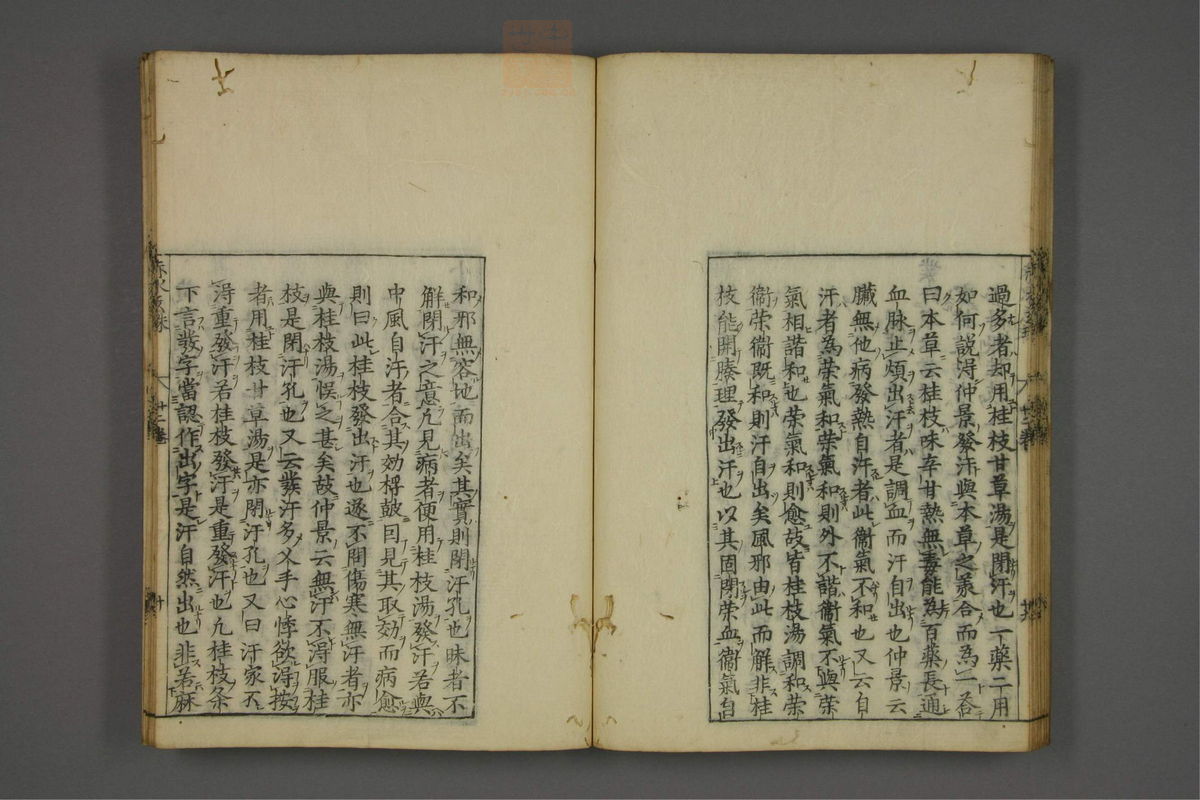 過多者却用桂枝甘草湯是閉汗也一藥二用
如何說淂仲景發汗與本草之義合而為一荅
曰本草云桂枝味辛甘熱無毒能為百藥長通
血脉止煩出汗者是調血而汗自出也仲景云
臟無他病發熱自汗者此衞氣不和也又云自
汗者為荣氣和荣氣和則外不諧衞氣不與荣
氣相諧和也荣氣和則愈故皆桂枝湯調和荣
衞荣衞既和則汗自出矣風邪由此而解非桂
枝能開腠理發出汗也以其固閉荣血衞氣自
和邪無容地而出矣其實則閉汗孔也昧者不
解閉汗之意凢見病者便用桂枝湯發汗若與
中風自汗者合其効桴皷因見其取効而病愈
則曰此桂枝發出汗也遂不問傷寒無汗者亦
與桂枝湯悮之甚矣故仲景云無汗不淂服桂
枝是閉汗孔也又云發汗多义手心悸欲淂按
者用桂枝甘草湯是亦閉汗孔也又曰汗家不
淂重發汗若桂枝發汗是重發汗也凢桂枝条
下言發字當認作出字是汗自然出也非若麻